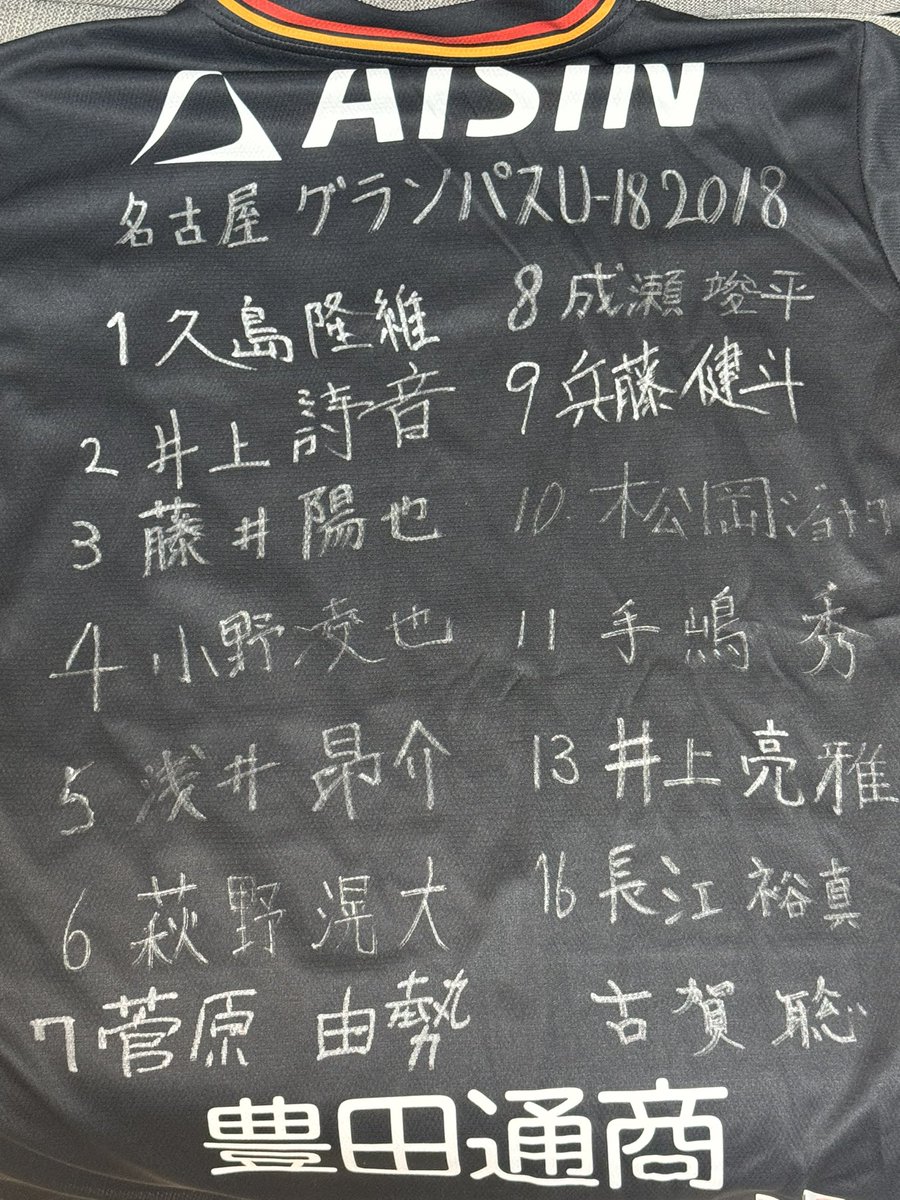 AISIN
名古屋 グランパスU-18 2018
1 久島隆維
2 井上詩音
3 藤井陽也
4 小野凌也
5 浅井昂介
6 萩野滉大
7 菅原由勢
8 成瀬竣平
9 兵藤健斗
10 松岡ジョナタン
11 手嶋秀
13 井上亮雅
16 長江裕真
古賀聡
豊田通商